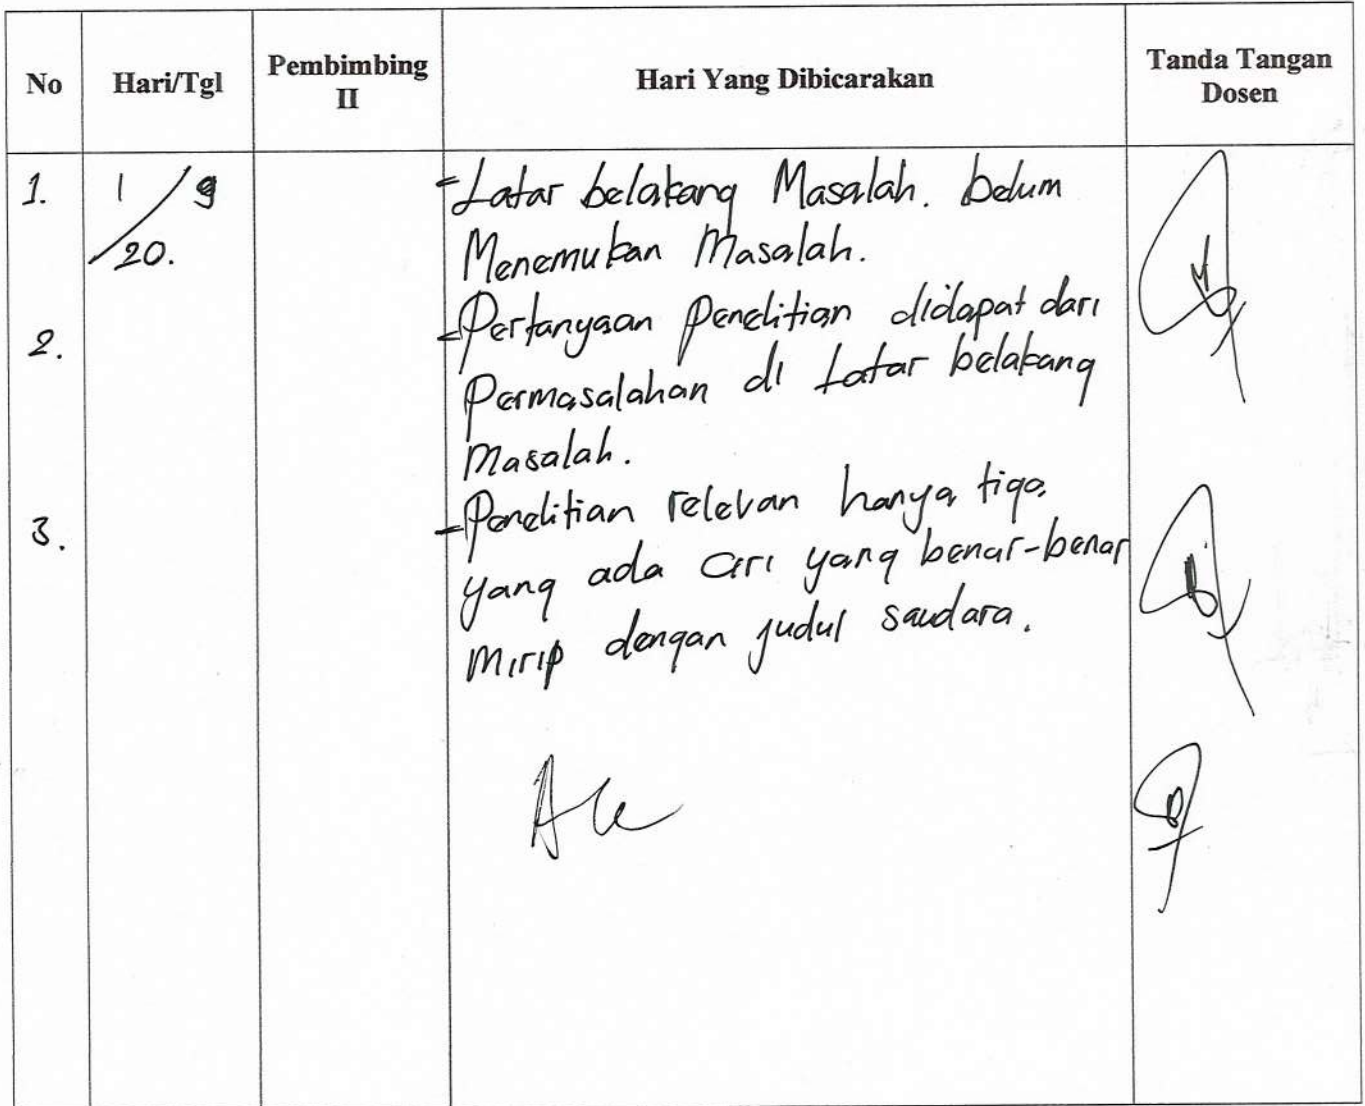 No Hari/Tgl Pembimbing II Hari Yang Dibicarakan Tanda Tangan Dosen
1. 1/9/20. - Latar belakang Masalah. belum
Menemukan Masalah.
2. - Pertanyaan Penelitian didapat dari
Permasalahan di Latar belakang
Masalah.
3. - Penelitian relevan hanya tiga
yang ada cari yang benar-benar
Mirip dengan judul saudara.